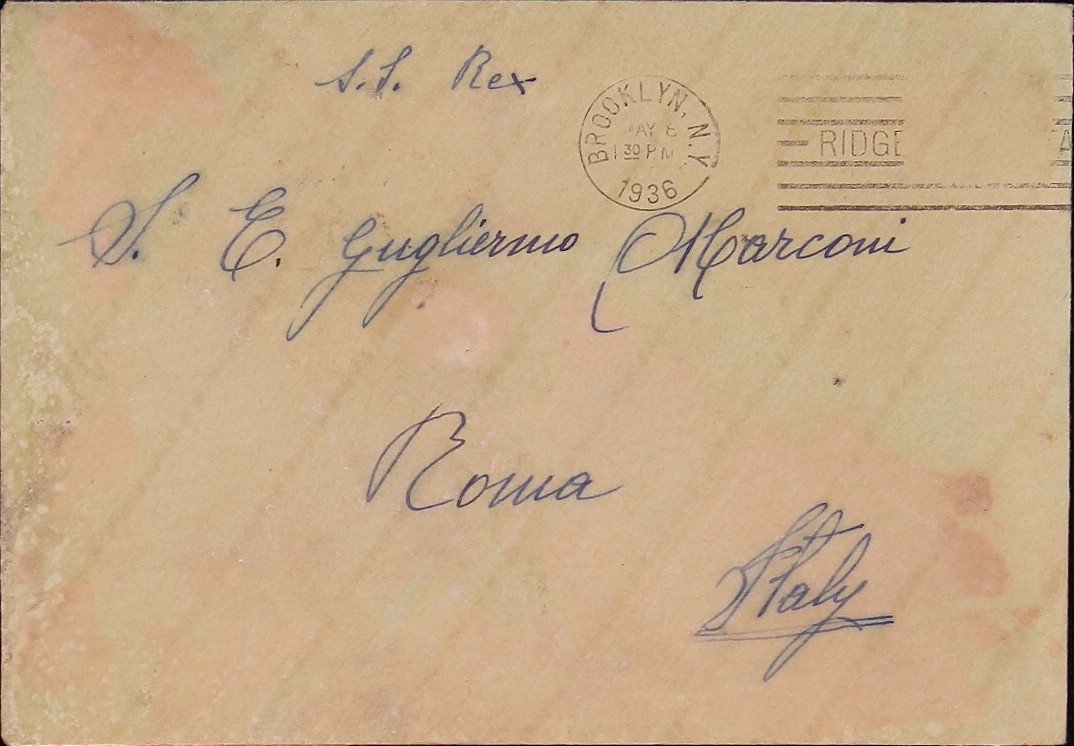 S.S. Rex
BROOKLYN, N.Y.
MAY 8
1 30 PM
1936
RIDGE
S. E. Guglielmo Marconi
Roma
Italy